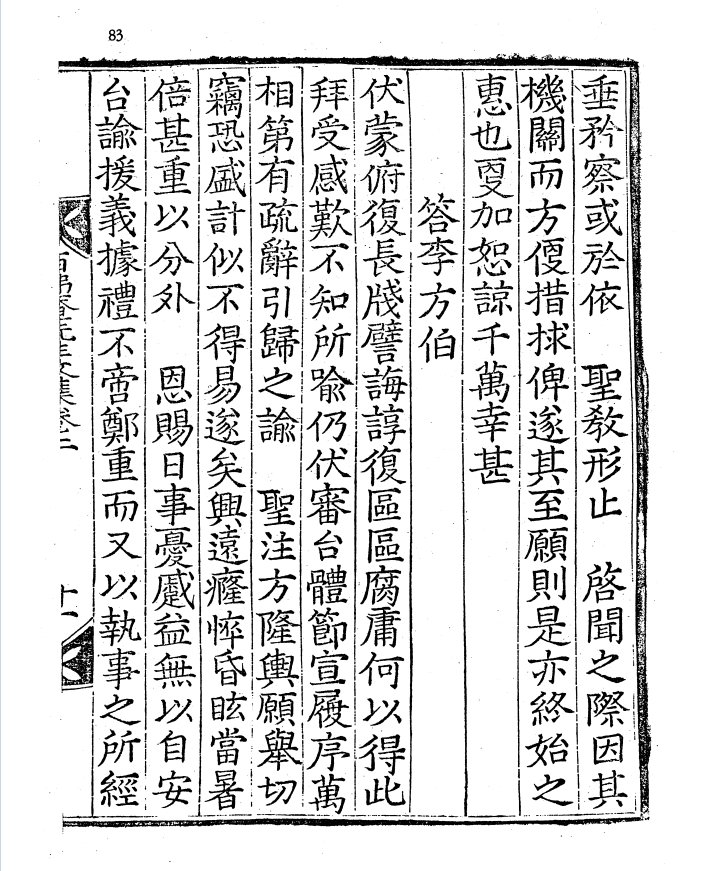 83
垂矜察或於依　聖敎形止　啓聞之際因其
機關而方便措捄俾遂其至願則是亦終始之
惠也更加恕諒千萬幸甚
答李方伯
伏蒙俯復長牋譬誨諄復區區腐庸何以得此
拜受感歎不知所喩仍伏審台體節宣履序萬
相第有疏辭引歸之諭　聖注方隆輿願舉切
竊恐盛計似不得易遂矣興遠癃悴昏眩當暑
倍甚重以分外　恩賜日事憂蹙益無以自安
台諭援義據禮不啻鄭重而又以執事之所經
先生文集卷二
十一